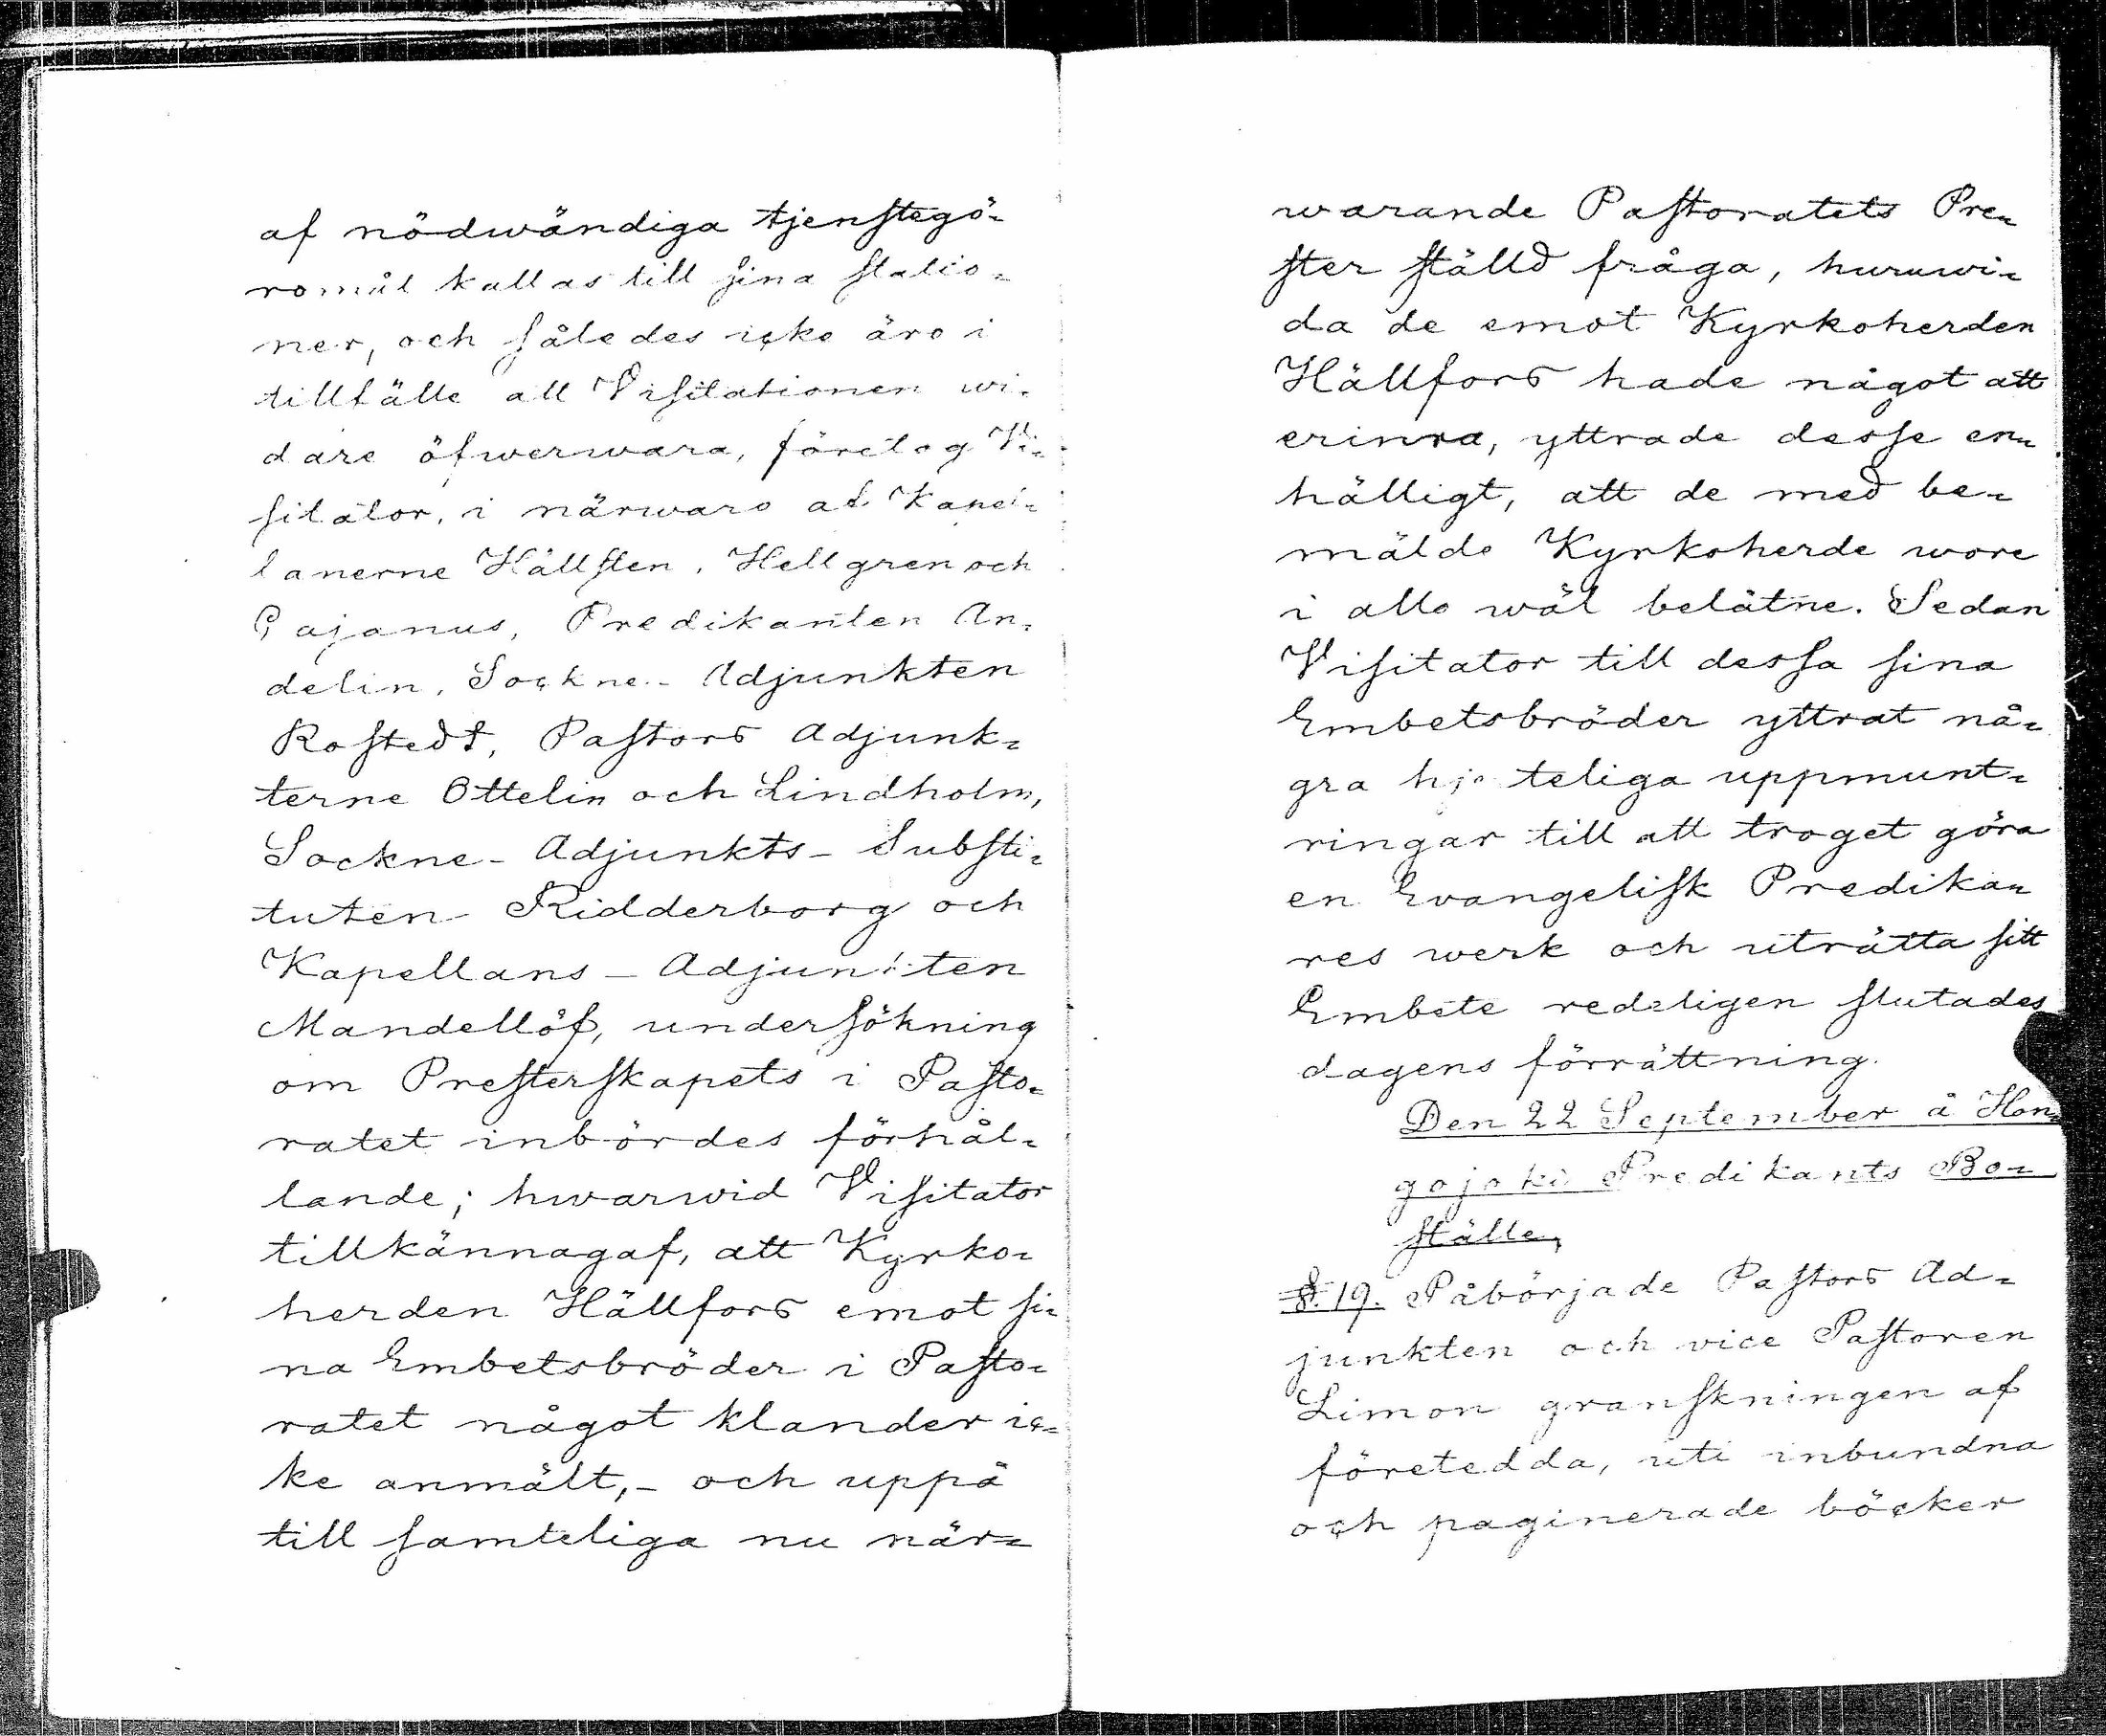 af nödwändiga tjenstegö-
romål kallas till sina statio-
ner, och således icke äro i
tillfälle att Visitationen wi-
dare öfwerwara, företog Vi-
sitator, i närwaro af Kapel-
lanerne Hällsten, Hellgren och
Pajanus, Predikanten An-
delin, Sockne-Adjunkten
Rostedt, Pastors Adjunk-
terne Ottelin och Lindholm,
Sockne-Adjunkts-Substi-
tuten Ridderborg och
Kapellans-Adjunkten
Mandellöf, undersökning
om Presterskapets i Pasto-
ratet inbördes förhål-
lande; hwarwid Visitator
tillkännagaf, att Kyrko-
herden Hällfors emot si-
na Embetsbröder i Pasto-
ratet något klander ic-
ke anmält,- och uppå
till samteliga nu när-
warande Pastoratets Pre-
ster ställd fråga, huruwi-
da de emot Kyrkoherden
Hällfors hade något att
erinra, yttrade desse en-
hälligt, att de med be-
mälde Kyrkoherde wore
i allo wäl belåtne. Sedan
Visitator till dessa sina
Embetsbröder yttrat nå-
gra hjerteliga uppmunt-
ringar till att troget göra
en Evangelisk Predika-
res werk och uträtta sitt
Embete redeligen slutades
dagens förrättning.
Den 22 September å Hon-
gojoki Predikants Bo-
ställe,
§. 19. Påbörjade Pastors Ad-
junkten och vice Pastoren
Limon granskningen af
företedda, uti inbundna
och paginerade böcker